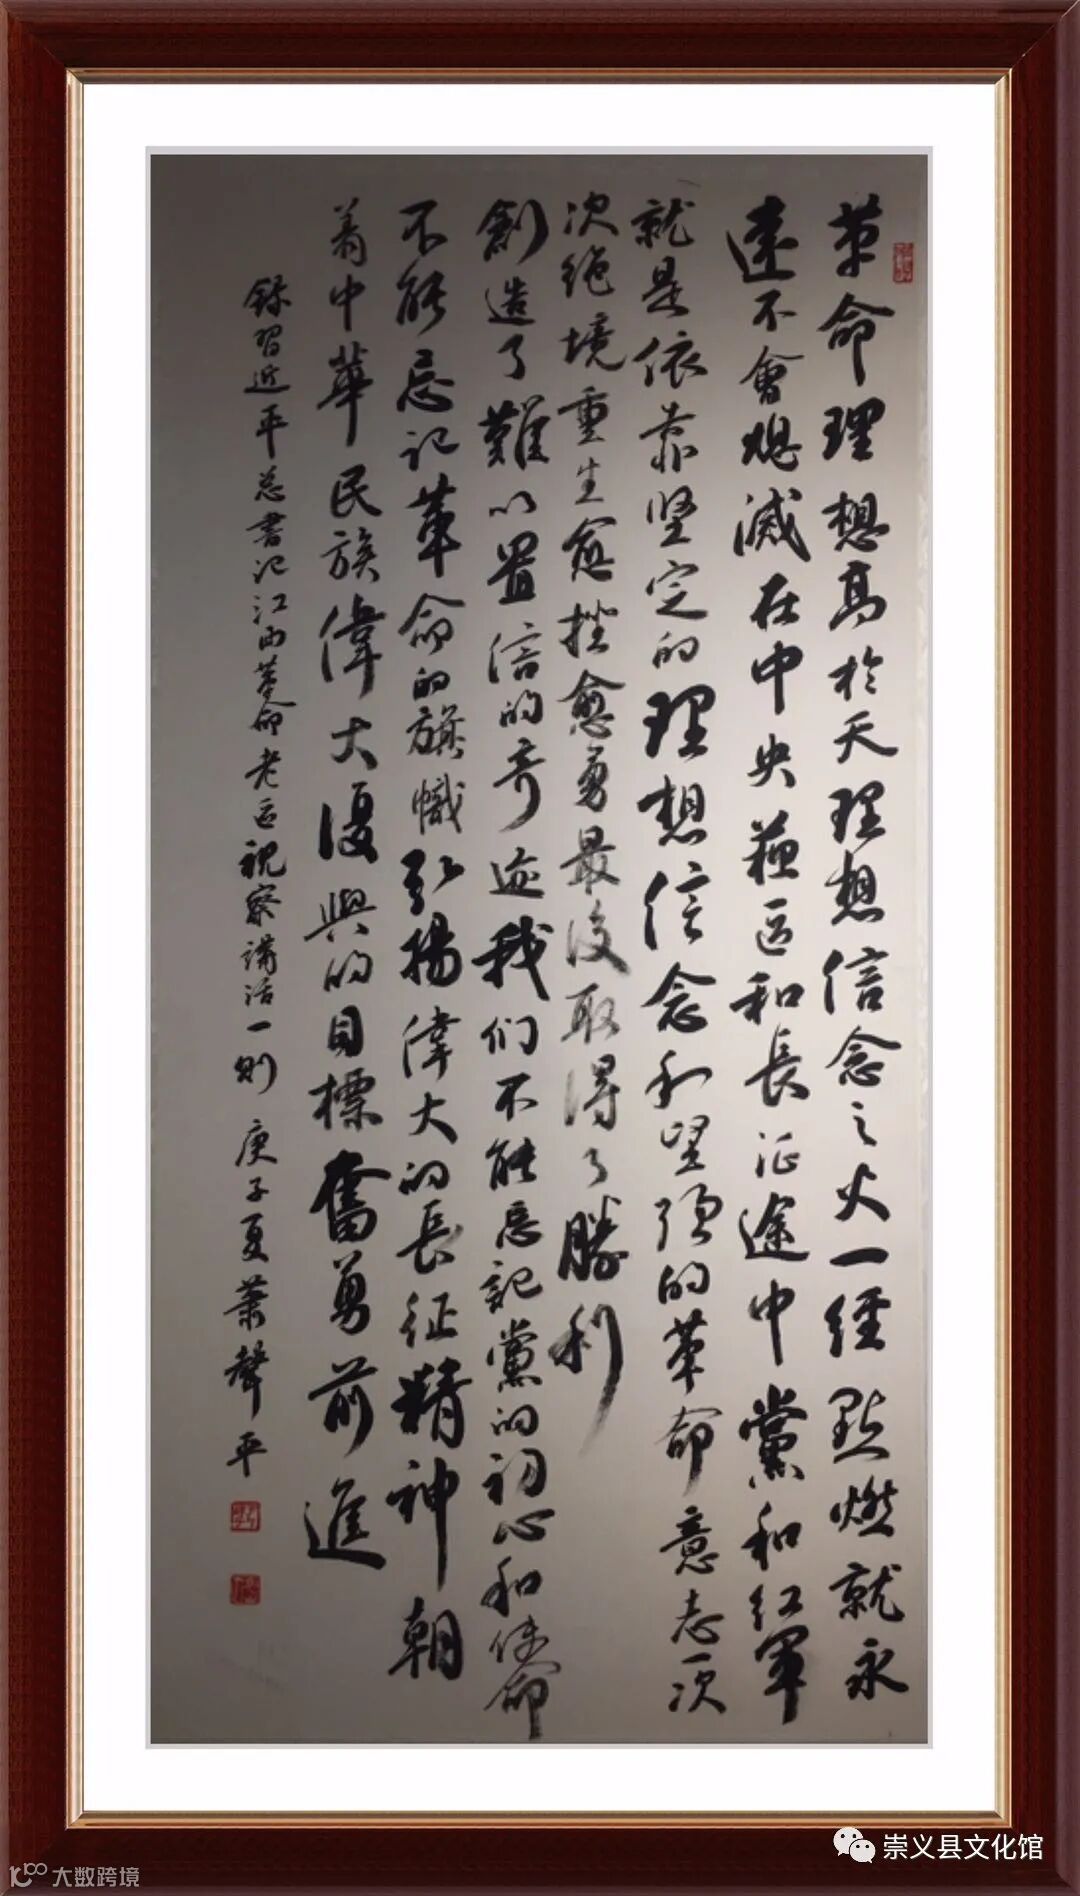 革命理想高於天理想信念之火一经點燃就永
遠不會熄滅在中央蘇区和長征途中黨和红軍
就是依靠坚定的理想信念和坚强的革命意志一次
次绝境重生愈挫愈勇最後取得了勝利
創造了難以置信的奇迹我们不能忘記黨的初心和使命
不能忘记革命的旗幟弘揚偉大的長征精神朝
着中華民族偉大復興的目標奮勇前進
錄習近平总書记江西革命老区視察講话一则 庚子夏蕭聲平
崇义县文化馆
大数跨境